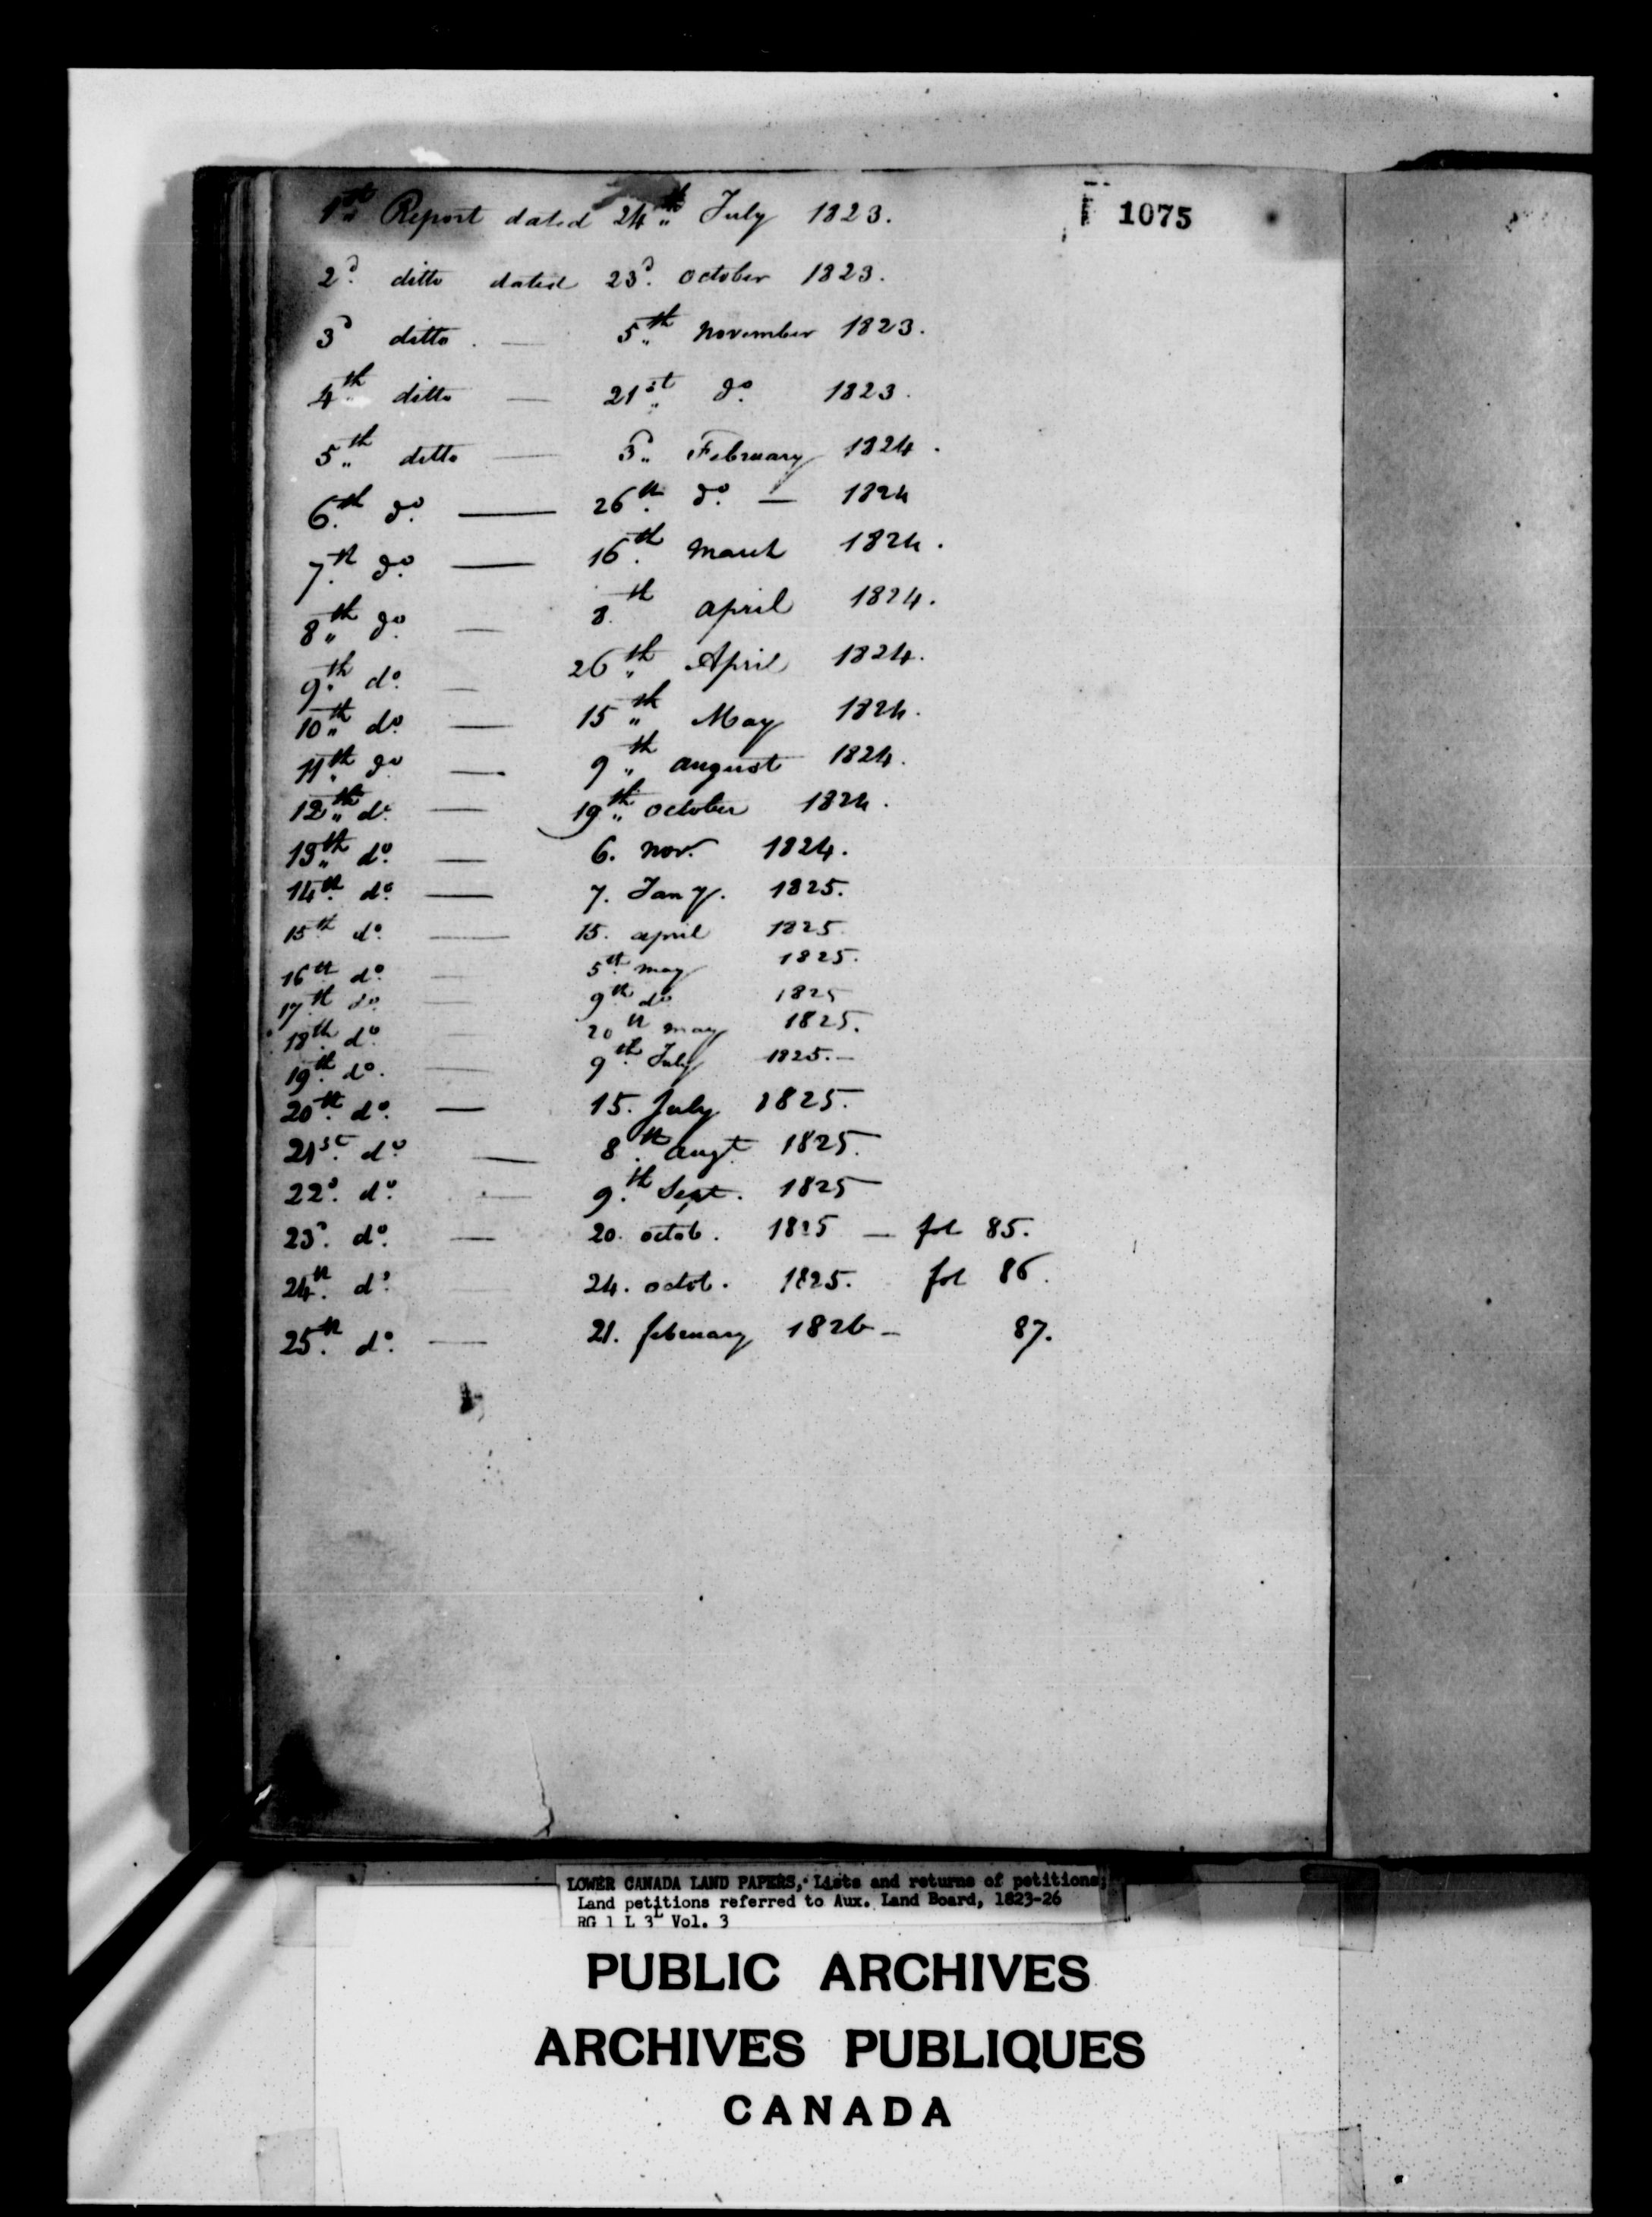 1st Report dated 24th July 1823.
1075
2d ditto dated 23d October 1823.
3d ditto. — 5th November 1823.
4th ditto — 21st do. 1823.
5th ditto — 3d February 1824.
6th do. — 26th do. — 1824
7th do. — 16th March 1824.
8th do. — 8th april 1824.
9th do. — 26th April 1824.
10th do. — 15th May 1824.
11th do — 9th august 1824.
12th do. — 19th October 1824.
13th do. — 6. Nov. 1824.
14th do. — 7. Jany. 1825.
15th do. — 15. april 1825.
16th do. — 5th May 1825.
17th do. — 9th do. 1825
18th do. — 20th May 1825.
19th do. — 9th July 1825.—
20th do. — 15. July 1825.
21st. do. — 8th augt. 1825.
22d. do. — 9th Sept. 1825
23d. do. — 20. octob. 1825 — fol 85.
24th do. — 24. octob. 1825. fol 86.
25th do. — 21. february 1826 — 87.
LOWER CANADA LAND PAPERS, Lists and returns of petitions;
Land petitions referred to Aux. Land Board, 1823-26
RG 1 L 3L Vol. 3
PUBLIC ARCHIVES
ARCHIVES PUBLIQUES
CANADA